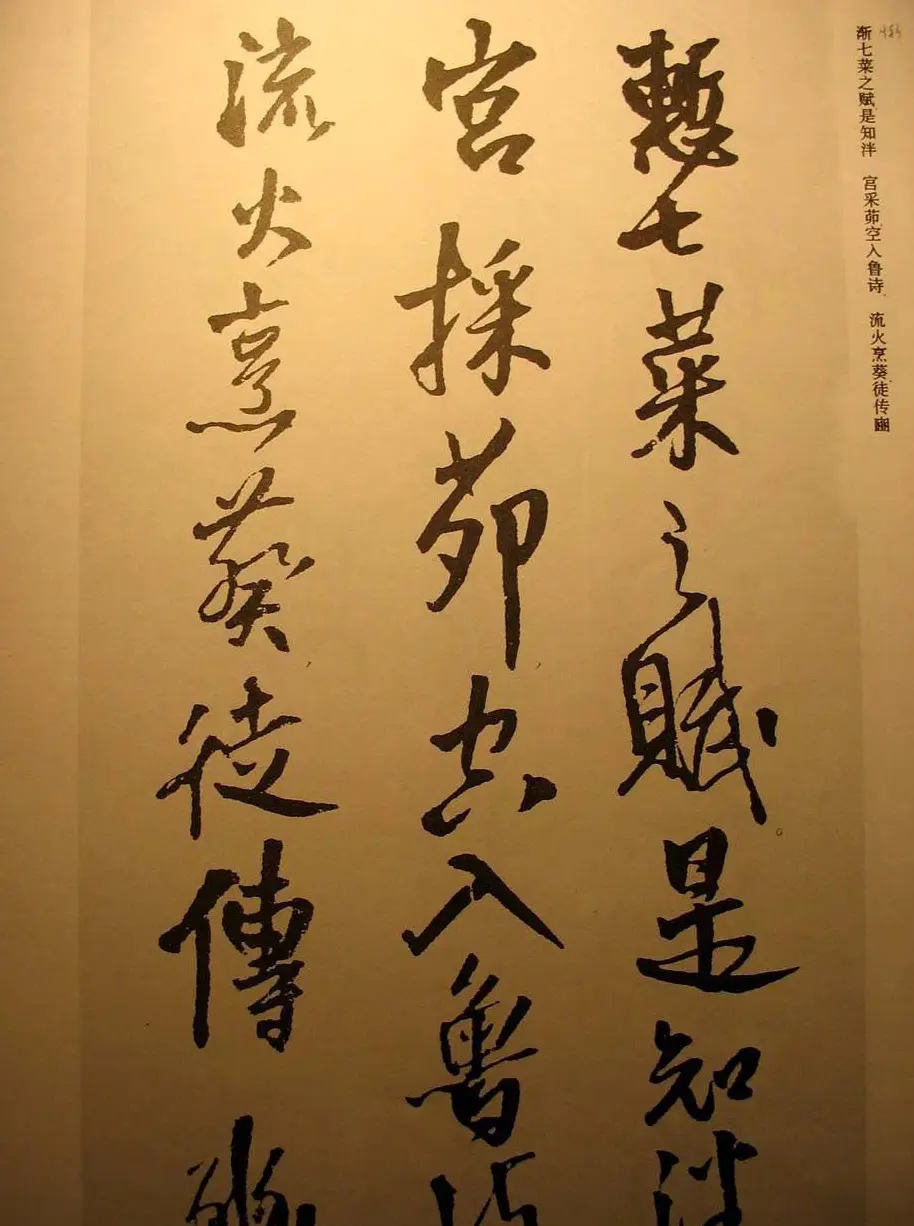 慙七菜之賦是知泮
宮採茆空入魯詩
流火烹葵徒傳豳
渐七菜之赋是知泮 宫采茆空入鲁诗 流火烹葵徒传豳